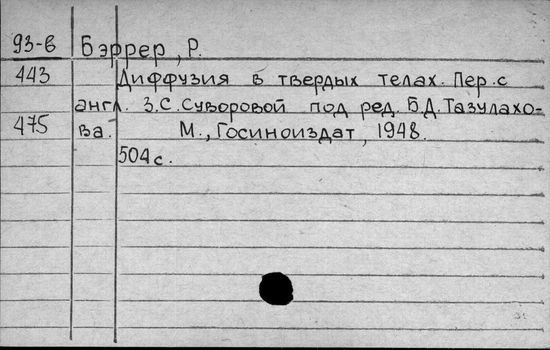 93-в Бэррер, Р.
443 Диффузия в твердых телах. Пер. с
англ. З.С. Суворовой под ред. Б.Д. Тазулахо-
475 ва. М., Госиноиздат, 1948.
504 с.